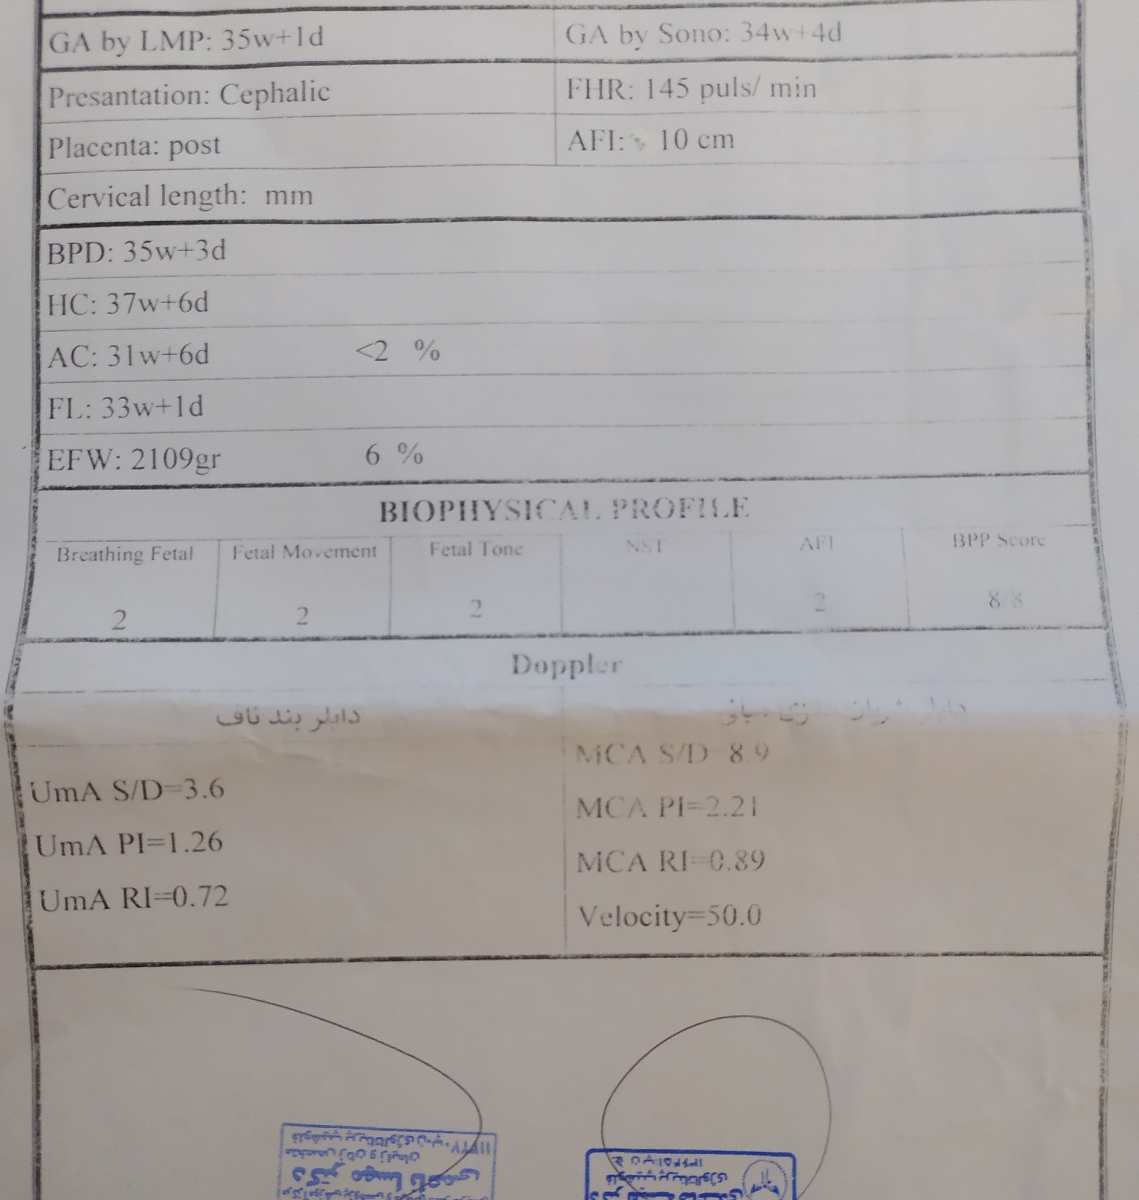 GA by LMP: 35w+1d
GA by Sono: 34w+4d
Presantation: Cephalic
FHR: 145 puls/ min
Placenta: post
AFI: 10 cm
Cervical length: mm
BPD: 35w+3d
HC: 37w+6d
AC: 31w+6d <2 %
FL: 33w+1d
EFW: 2109gr 6 %
BIOPHYSICAL PROFILE
Breathing Fetal Fetal Movement Fetal Tone NST AFI BPP Score
2 2 2 2 8/8
Doppler
داپلر بند ناف
UmA S/D=3.6
UmA PI=1.26
UmA RI=0.72
MCA S/D=8.9
MCA PI=2.21
MCA RI=0.89
Velocity=50.0